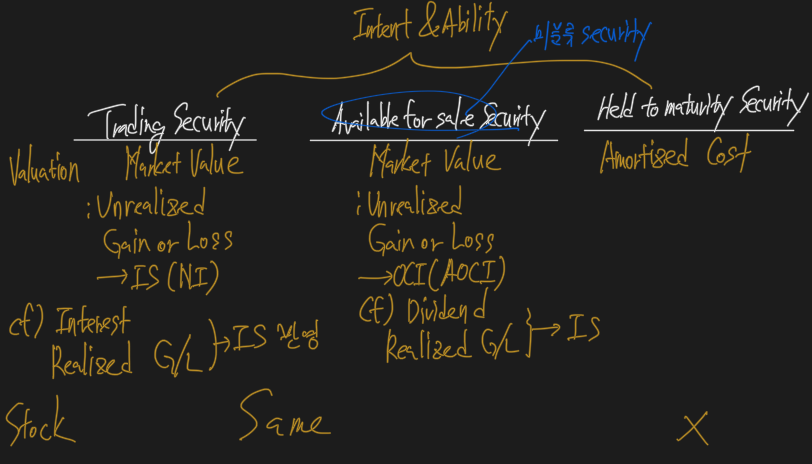 Intent & Ability
미분류 security
Trading Security
Available for sale Security
Held to maturity Security
Valuation
Market Value
: Unrealized
Gain or Loss
→ IS (NI)
cf) Interest
Realized G/L
→ IS 반영
Market Value
: Unrealized
Gain or Loss
→ OCI (AOCI)
cf) Dividend
Realized G/L
→ IS
Amortized Cost
Stock
Same
X